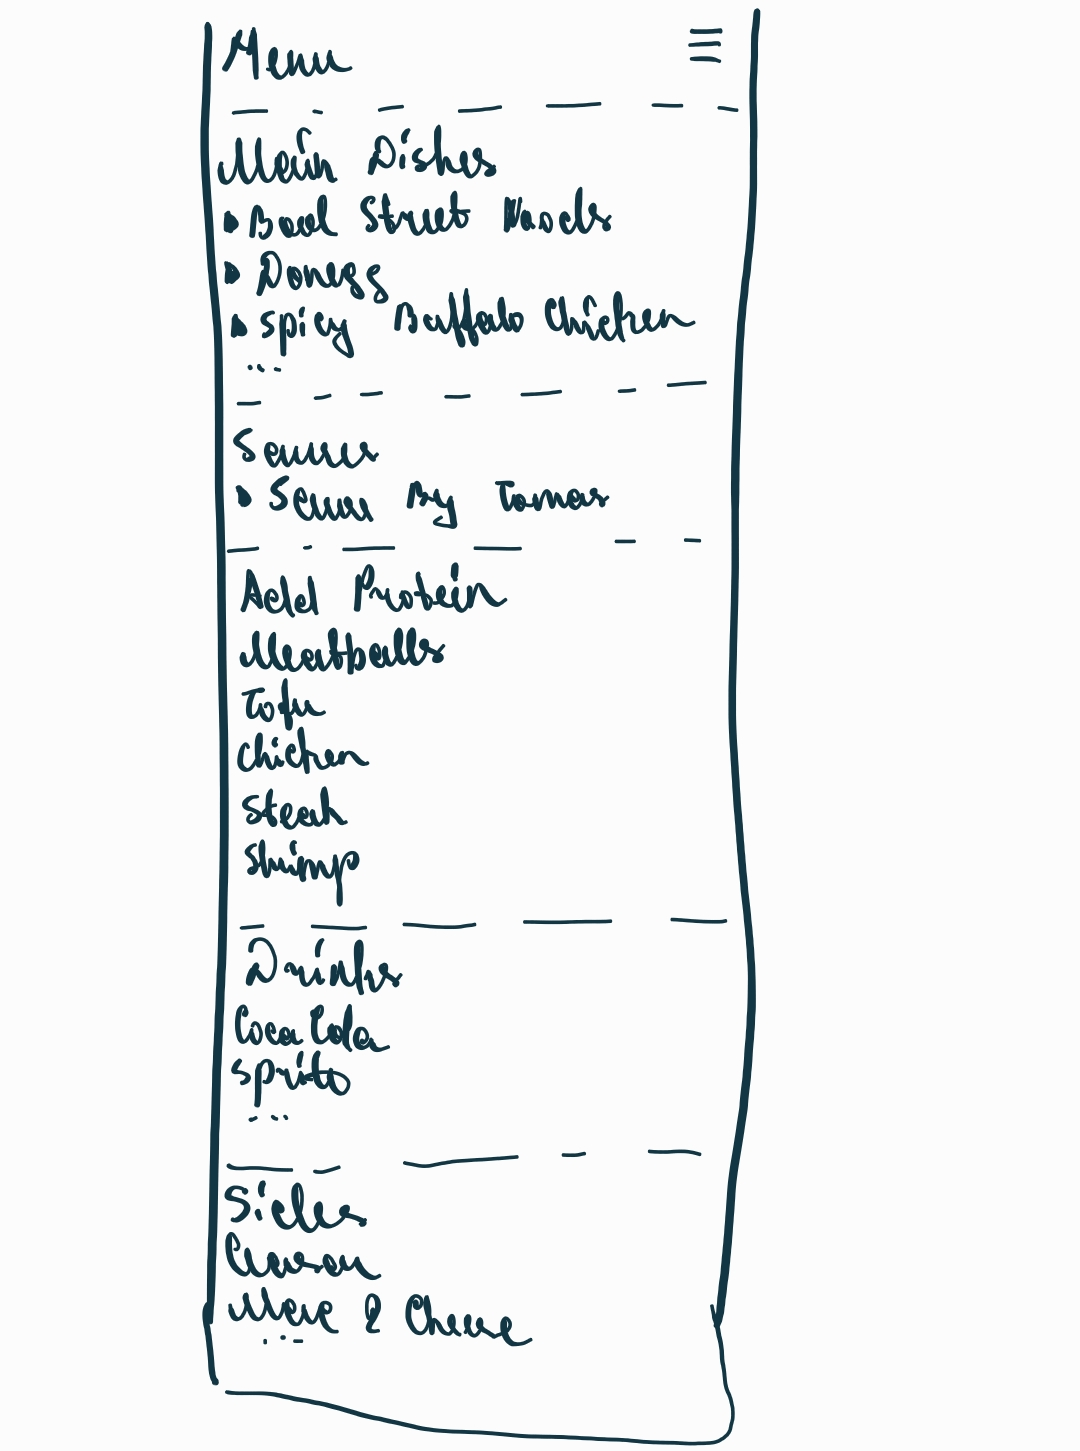 Menu
Main Dishes
Street
Spicy Buffalo Chicken
...
Sauces
By Tomas
Add Protein
Meatballs
Tofu
Chicken
Steak
Shrimp
Drinks
Coca Cola
Sprite
...
Sides
Mac & Cheese
...